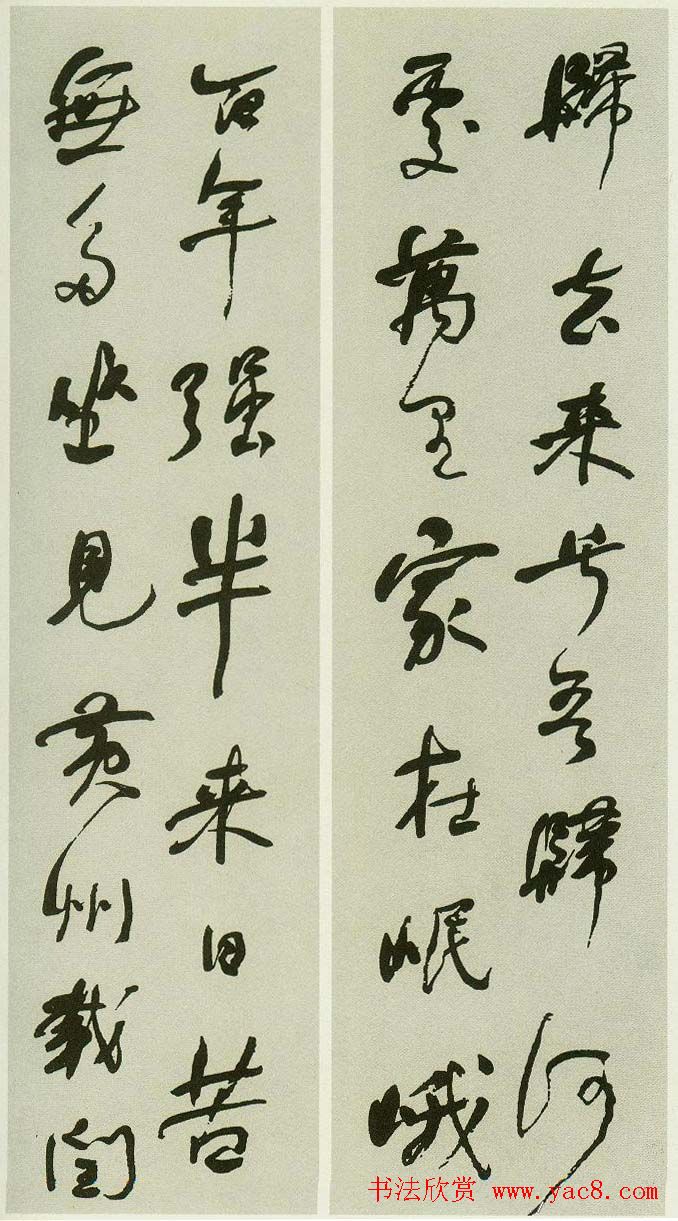 歸去来兮吾歸何
處萬里家在岷峨
百年强半来日苦
無多坐見黄州載閏
书法欣赏 www.yac8.com